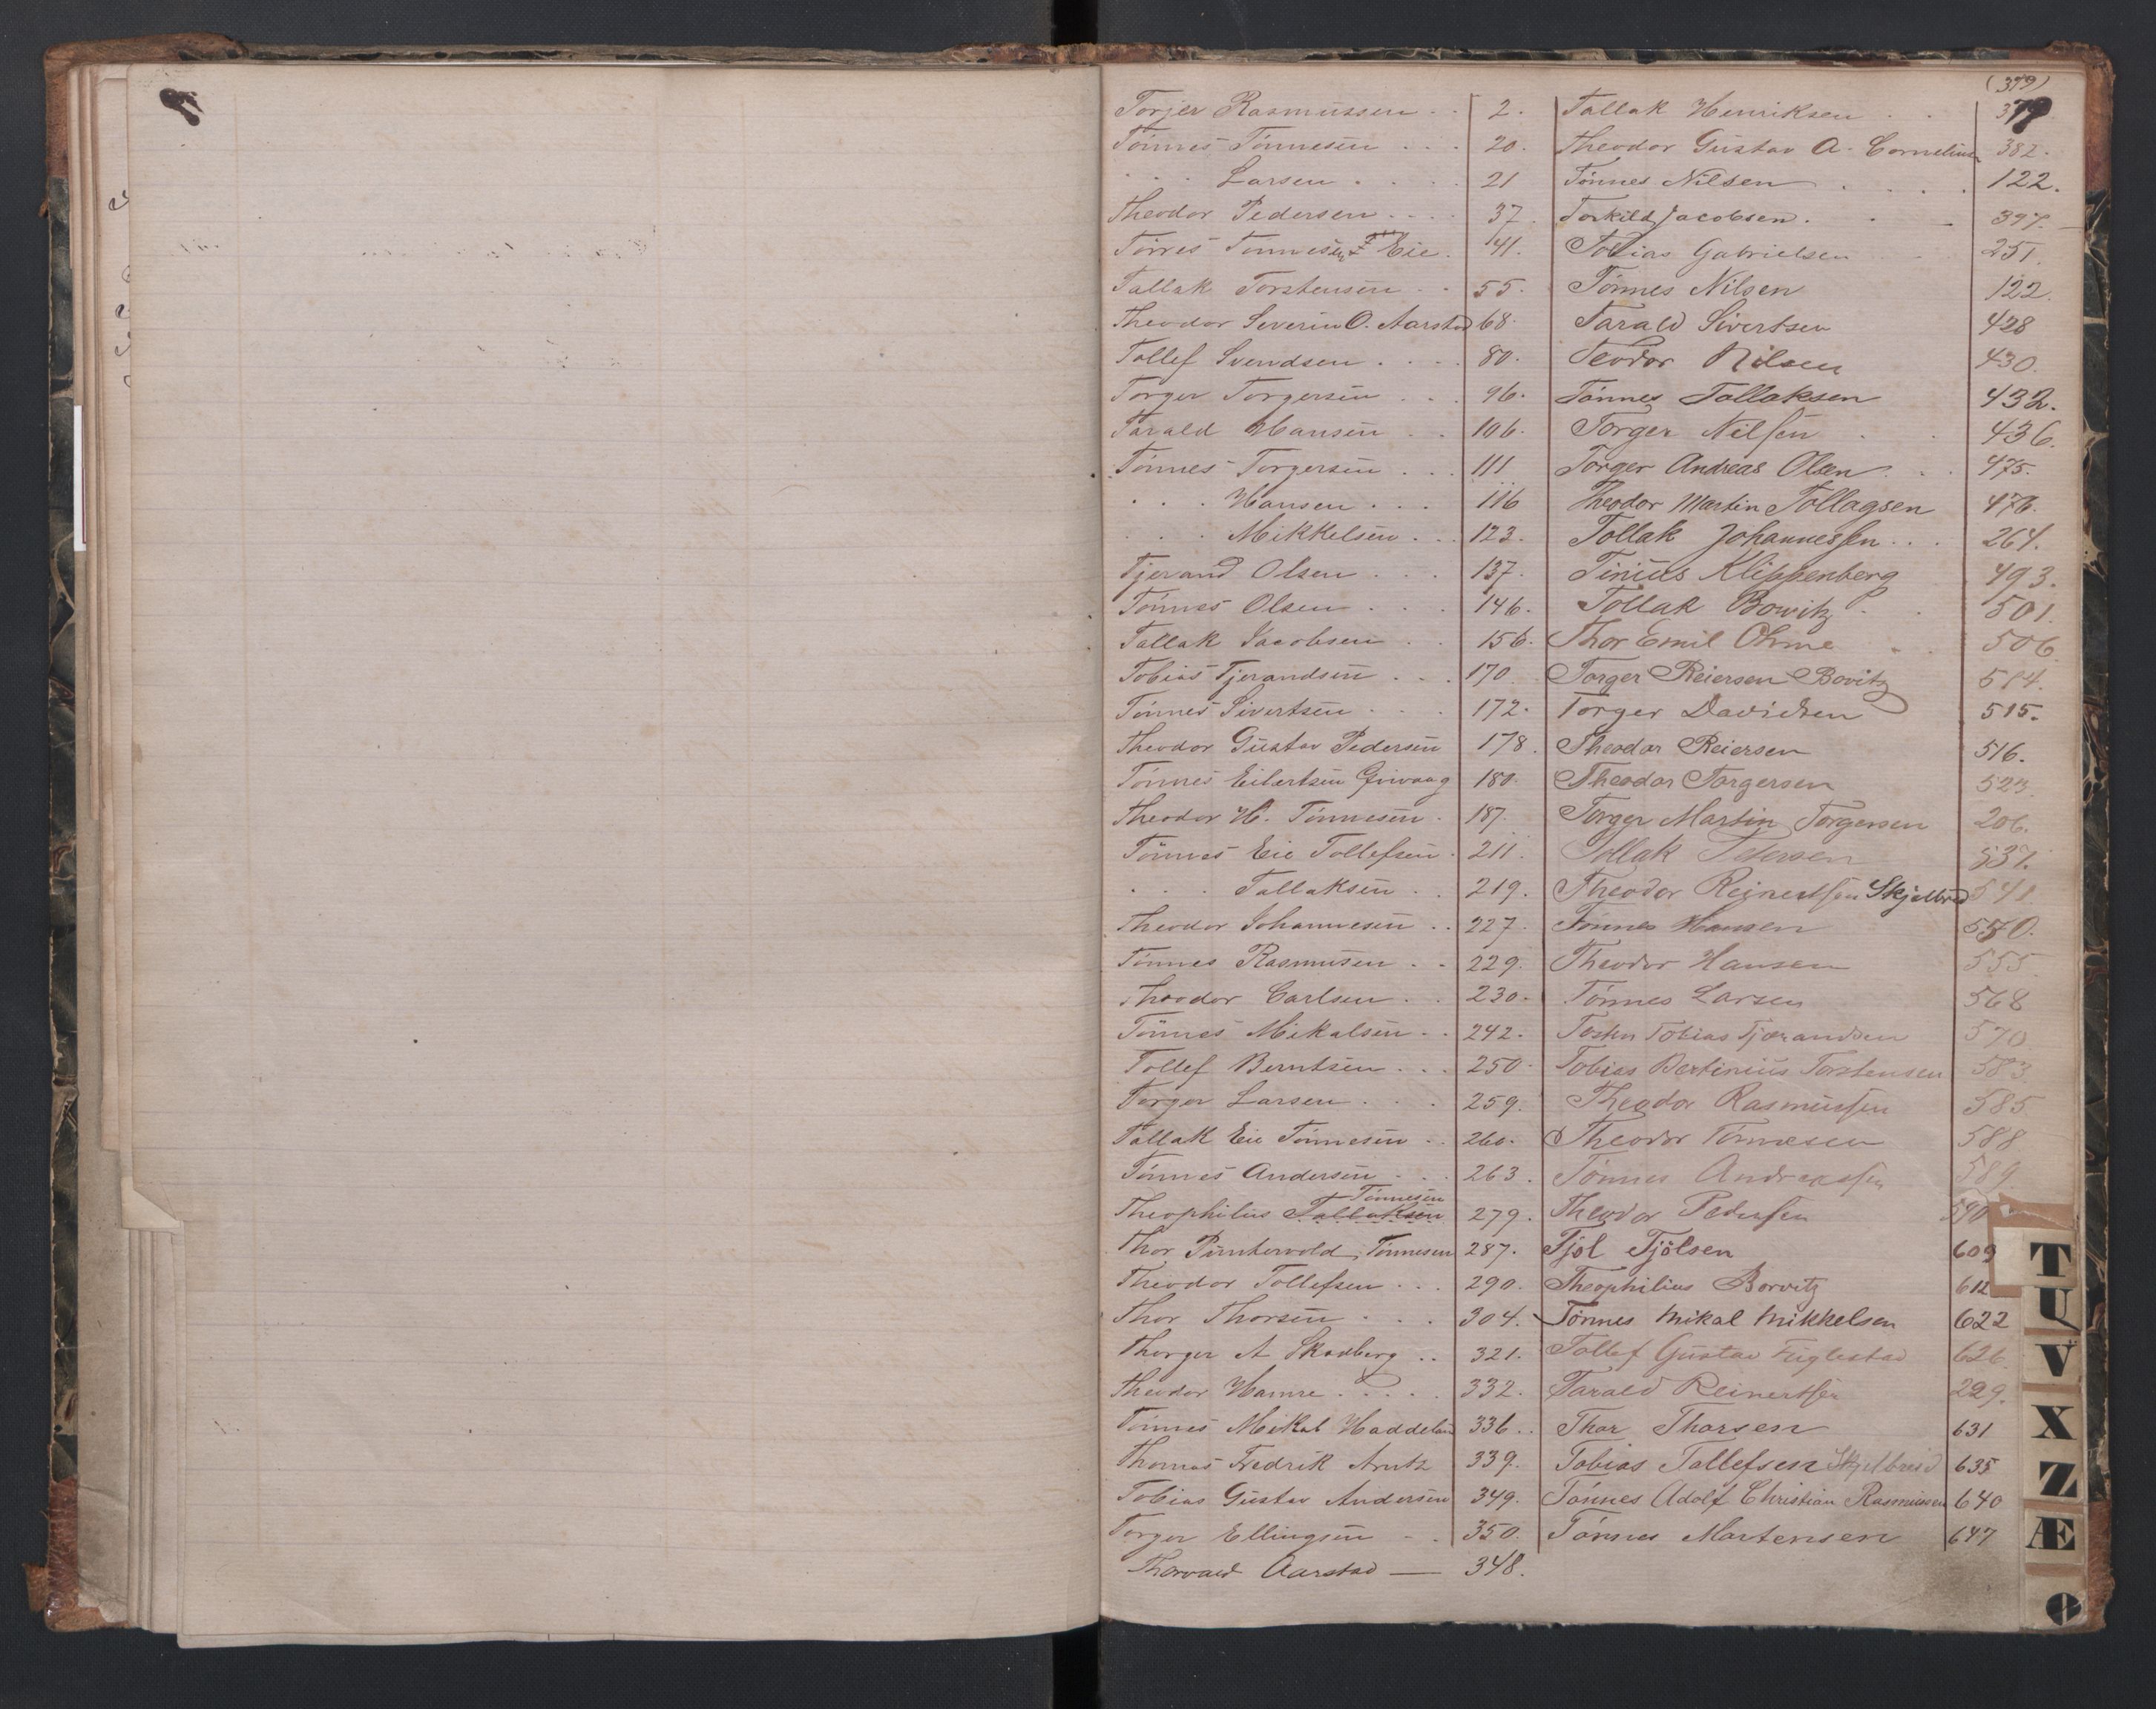 (379)
Torjer Rasmussen . . 2.
Tönnes Tönnesen . . . 20.
. . . Larsen . . . . 21
Theodor Pedersen . . . . 37.
Törres Tönnesen Eie . 41.
Tallak Torstensen . . 55.
Theodor Severin O. Aarstad 68.
Tollef Svendsen . . . . 80.
Torger Torgersen . . . 96.
Tarald Hansen . . 106.
Tönnes Torgersen . . . 111
. . . Hansen . . . 116
. . . Mikkelsen . . . 123.
Tjerand Olsen . . . 137.
Tönnes Olsen . . . 146.
Tallak Jacobsen . . 156.
Tobias Tjerandsen . . . 170
Tönnes Sivertsen . . . 172.
Theodor Gustav Pedersen 178.
Tönnes Eilertsen 180.
Theodor H. Tönnesen . 187.
Tönnes Eie Tollefsen . 211.
. . . Tallaksen . . 219.
Theodor Johannesen . . 227.
Tönnes Rasmusen . . 229.
Theodor Carlsen . . 230.
Tönnes Mikalsen . . 242.
Tollef Berntsen . . . 250.
Torger Larsen . . . 259.
Tallak Eie Tönnesen . . 260.
Tönnes Andersen . . . 263.
Tönnesen
Theophilus Tallaksen 279.
Thor Puntervold Tönnesen 287.
Theodor Tollefsen . . . 290.
Thor Thorsen . . . . 304.
Thorger A Skadberg . . 321.
Theodor Hamre . . . . . 332.
Tönnes Mikal Haddeland 336. .
Thomas Fredrik Arntz 339.
Tobias Gustav Andersen 349.
Torger Ellingsen . . 350.
Thorvald Aarstad — 348.
Tallak Henriksen . . 379
Theodor Gustav A. Cornelius 382.
Tönnes Nilsen . . . . 122.
Torkild Jacobsen . . 397.
Tobias Gabrielsen 251.
Tönnes Nilsen 122.
Tarald Sivertsen 428
Teodor Nilsen 430.
Tönnes Tallaksen 432.
Torger Nilsen . . 436.
Torger Andreas Olsen . . 475.
Theodor Martin Tollagsen 476.
Tollak Johannessen . . . 264.
Tinius Klippenberg 493.
Tollak Bowitz . . 501.
Thor Emil Ohme . . 506.
Torger Reiersen Bovitz 514.
Torger Davidsen 515.
Theodor Reiersen 516.
Theodor Torgersen 523.
Torger Martin Torgersen 206.
Tollak Petersen 537.
Theodor Reinertsen Skjelbred 541.
Tönnes Hansen 550.
Theodor Hansen 555.
Tönnes Larsen 568
Tobias Tjærandsen 570
Tobias Bertinius Torstensen 583.
Theodor Rasmussen 585.
Theodor Tönnesen 588
Tönnes Andreassen 589.
Theodor Pedersen 590
Tjöl Tjölsen 609
Theophilius Borvitz 612
Tönnes Mikal Mikkelsen 622
Tollef Gustav Fuglestad 626.
Tarald Reinertsen 229.
Thor Thorsen 631
Tobias Tollefsen Skjelbreid 635
Tönnes Adolf Christian Rasmussen 640
Tönnes Martensen 647
T
U
V
X
Z
Æ
Ø